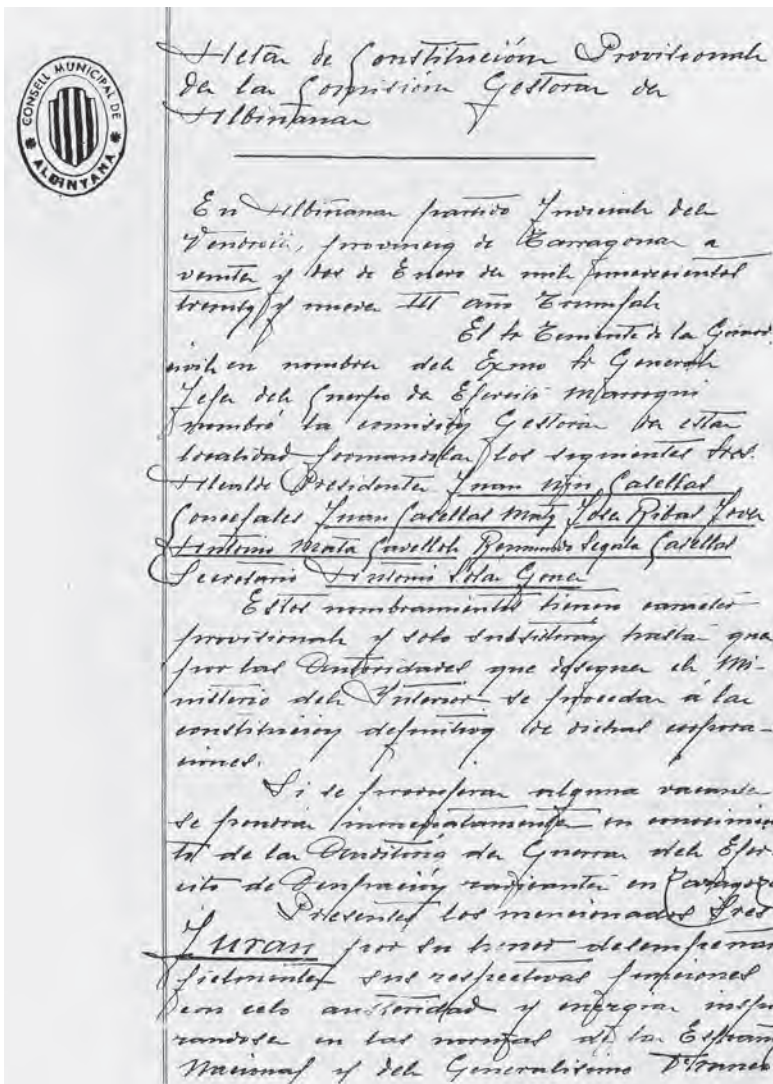 CONSELL MUNICIPAL DE
ALBINYANA
Acta de Constitución Provisional
de la Comisión Gestora de
Albiñana
En Albiñana partido Judicial del
Vendrell, provincia de Tarragona a
veinte y dos de Enero de mil novecientos
treinta y nueve III año Triunfal
El Sr Teniente de la Guardia
civil en nombre del Exmo Sr General
Jefe del Cuerpo de Ejercito Marroqui
nombró la comisión Gestora de esta
localidad formandola los siguientes Sres.
Alcalde Presidente Juan Casellas
Concejales Juan Casellas Jose Ribas
Antonio Mata Segala Casellas
Secretario Antonio Sola
Estos nombramientos tienen caracter
provisional y solo subsistiran hasta que
por las Autoridades que designe el Mi-
nisterio del Interior se proceda á la
constitucion definitiva de dichas corpora-
ciones.
Si se produjera alguna vacante
se pondra inmediatamente en conocimien
to de la Auditoria de Guerra del Ejer-
cito de Ocupación radicante en Zaragoza
Presentes los mencionados Sres
Juran por su honor desempeñar
fielmente sus respectivas funciones
con celo austeridad y energia inspi
randose en las normas de la España
Nacional y del Generalisimo Franco